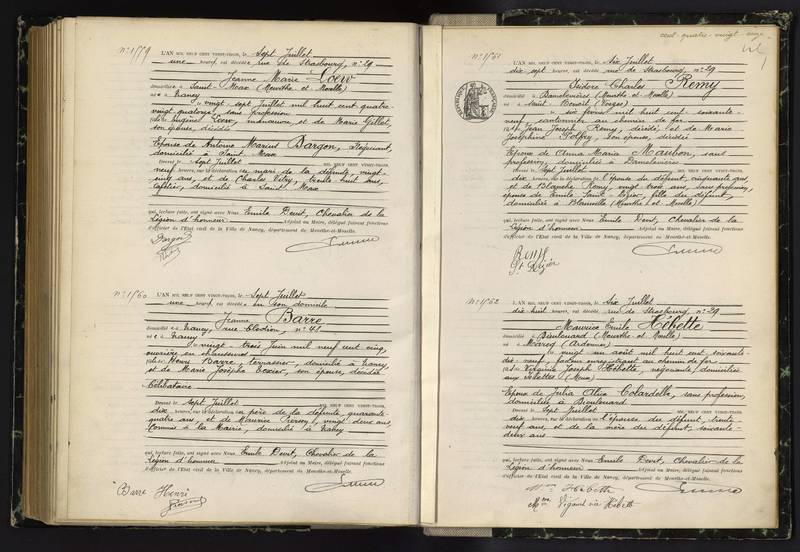 N° 1559
L'AN MIL NEUF CENT VINGT-TROIS, le Sept Juillet
une heure, est décédée rue de Strasbourg, n° 29
Jeanne Marie Loew
domiciliée à Saint-Max (Meurthe et Moselle)
née à Nancy
le vingt sept Juillet mil huit cent quatre-
vingt quatorze, sans profession
fille de Eugène Loew, manœuvre, et de Marie Gillet,
son épouse, décédée
Epouse de Antoine Marius Bargon, Négociant,
domicilié à Saint-Max
Devant le Sept Juillet MIL NEUF CENT VINGT-TROIS,
neuf heures, sur la déclaration du mari de la défunte, vingt-
cinq ans, et de Charles Vitry, trente huit ans,
cafetier, domicilié à Saint-Max
qui, lecture faite, ont signé avec Nous Emile Devit, Chevalier de la
Légion d'honneur Adjoint au Maire, délégué faisant fonctions
d'Officier de l'Etat civil de la Ville de Nancy, département de Meurthe-et-Moselle.
Bargon
Vitry
N° 1560
L'AN MIL NEUF CENT VINGT-TROIS, le Sept Juillet
une heure, est décédée en son domicile
Jeanne Barre
domiciliée à Nancy, rue Clodion, n° 41
née à Nancy
le vingt-trois Juin mil neuf cent cinq,
ouvrière en chaussures
fille de Henri Barre, Terrassier, domicilié à Nancy,
et de Marie Josèphe Texier, son épouse, décédée
Célibataire
Devant le Sept Juillet MIL NEUF CENT VINGT-TROIS,
dix heures, sur la déclaration du père de la défunte, quarante-
quatre ans, et de Maurice Pierson, vingt deux ans,
Commis à la Mairie, domicilié à Nancy
qui, lecture faite, ont signé avec Nous Emile Devit, Chevalier de la
Légion d'honneur Adjoint au Maire, délégué faisant fonctions
d'Officier de l'Etat civil de la Ville de Nancy, département de Meurthe-et-Moselle.
Barre Henri
Pierson
cent-quatre-vingt-onze
N° 1561
L'AN MIL NEUF CENT VINGT-TROIS, le Six Juillet
dix sept heures, est décédé rue de Strasbourg, n° 29
Isidore Charles Remy
domicilié à Damelevières (Meurthe et Moselle)
né à Saint-Benoît (Vosges)
le six février mil huit cent soixante-
neuf, cantonnier au chemin de fer
fils de Jean Joseph Remy, décédé, et de Marie
Joséphine, son épouse, décédée
Epoux de Anna Marie Maubon, sans
profession, domiciliée à Damelevières
Devant le Sept Juillet MIL NEUF CENT VINGT-TROIS,
dix heures, sur la déclaration de l'épouse du défunt, cinquante ans,
et de Blanche Remy, vingt trois ans, sans profession,
épouse de Emile Saint-Dizier, fille du défunt,
domiciliée à Blainville (Meurthe et Moselle)
qui, lecture faite, ont signé avec Nous Emile Devit, Chevalier de la
Légion d'honneur Adjoint au Maire, délégué faisant fonctions
d'Officier de l'Etat civil de la Ville de Nancy, département de Meurthe-et-Moselle.
Remy
St Dizier
N° 1562
L'AN MIL NEUF CENT VINGT-TROIS, le Six Juillet
dix-huit heures, est décédé rue de Strasbourg, n° 29
Maurice Emile Hébette
domicilié à Dieulouard (Meurthe et Moselle)
né à Marcq (Ardennes)
le vingt un août mil huit cent soixante-
dix-neuf, facteur enregistrant au chemin de fer
fils de Virginie Joseph Hébette, négociante, domiciliée
aux Islettes (Meuse)
Epoux de Julia Alice Colardelle, sans profession,
domiciliée à Dieulouard
Devant le Sept Juillet MIL NEUF CENT VINGT-TROIS,
dix heures, sur la déclaration de l'épouse du défunt, trente
neuf ans, et de la mère du défunt, soixante-
deux ans
qui, lecture faite, ont signé avec Nous Emile Devit, Chevalier de la
Légion d'honneur Adjoint au Maire, délégué faisant fonctions
d'Officier de l'Etat civil de la Ville de Nancy, département de Meurthe-et-Moselle.
Mme Hébette
Mme Vigant née Hébette